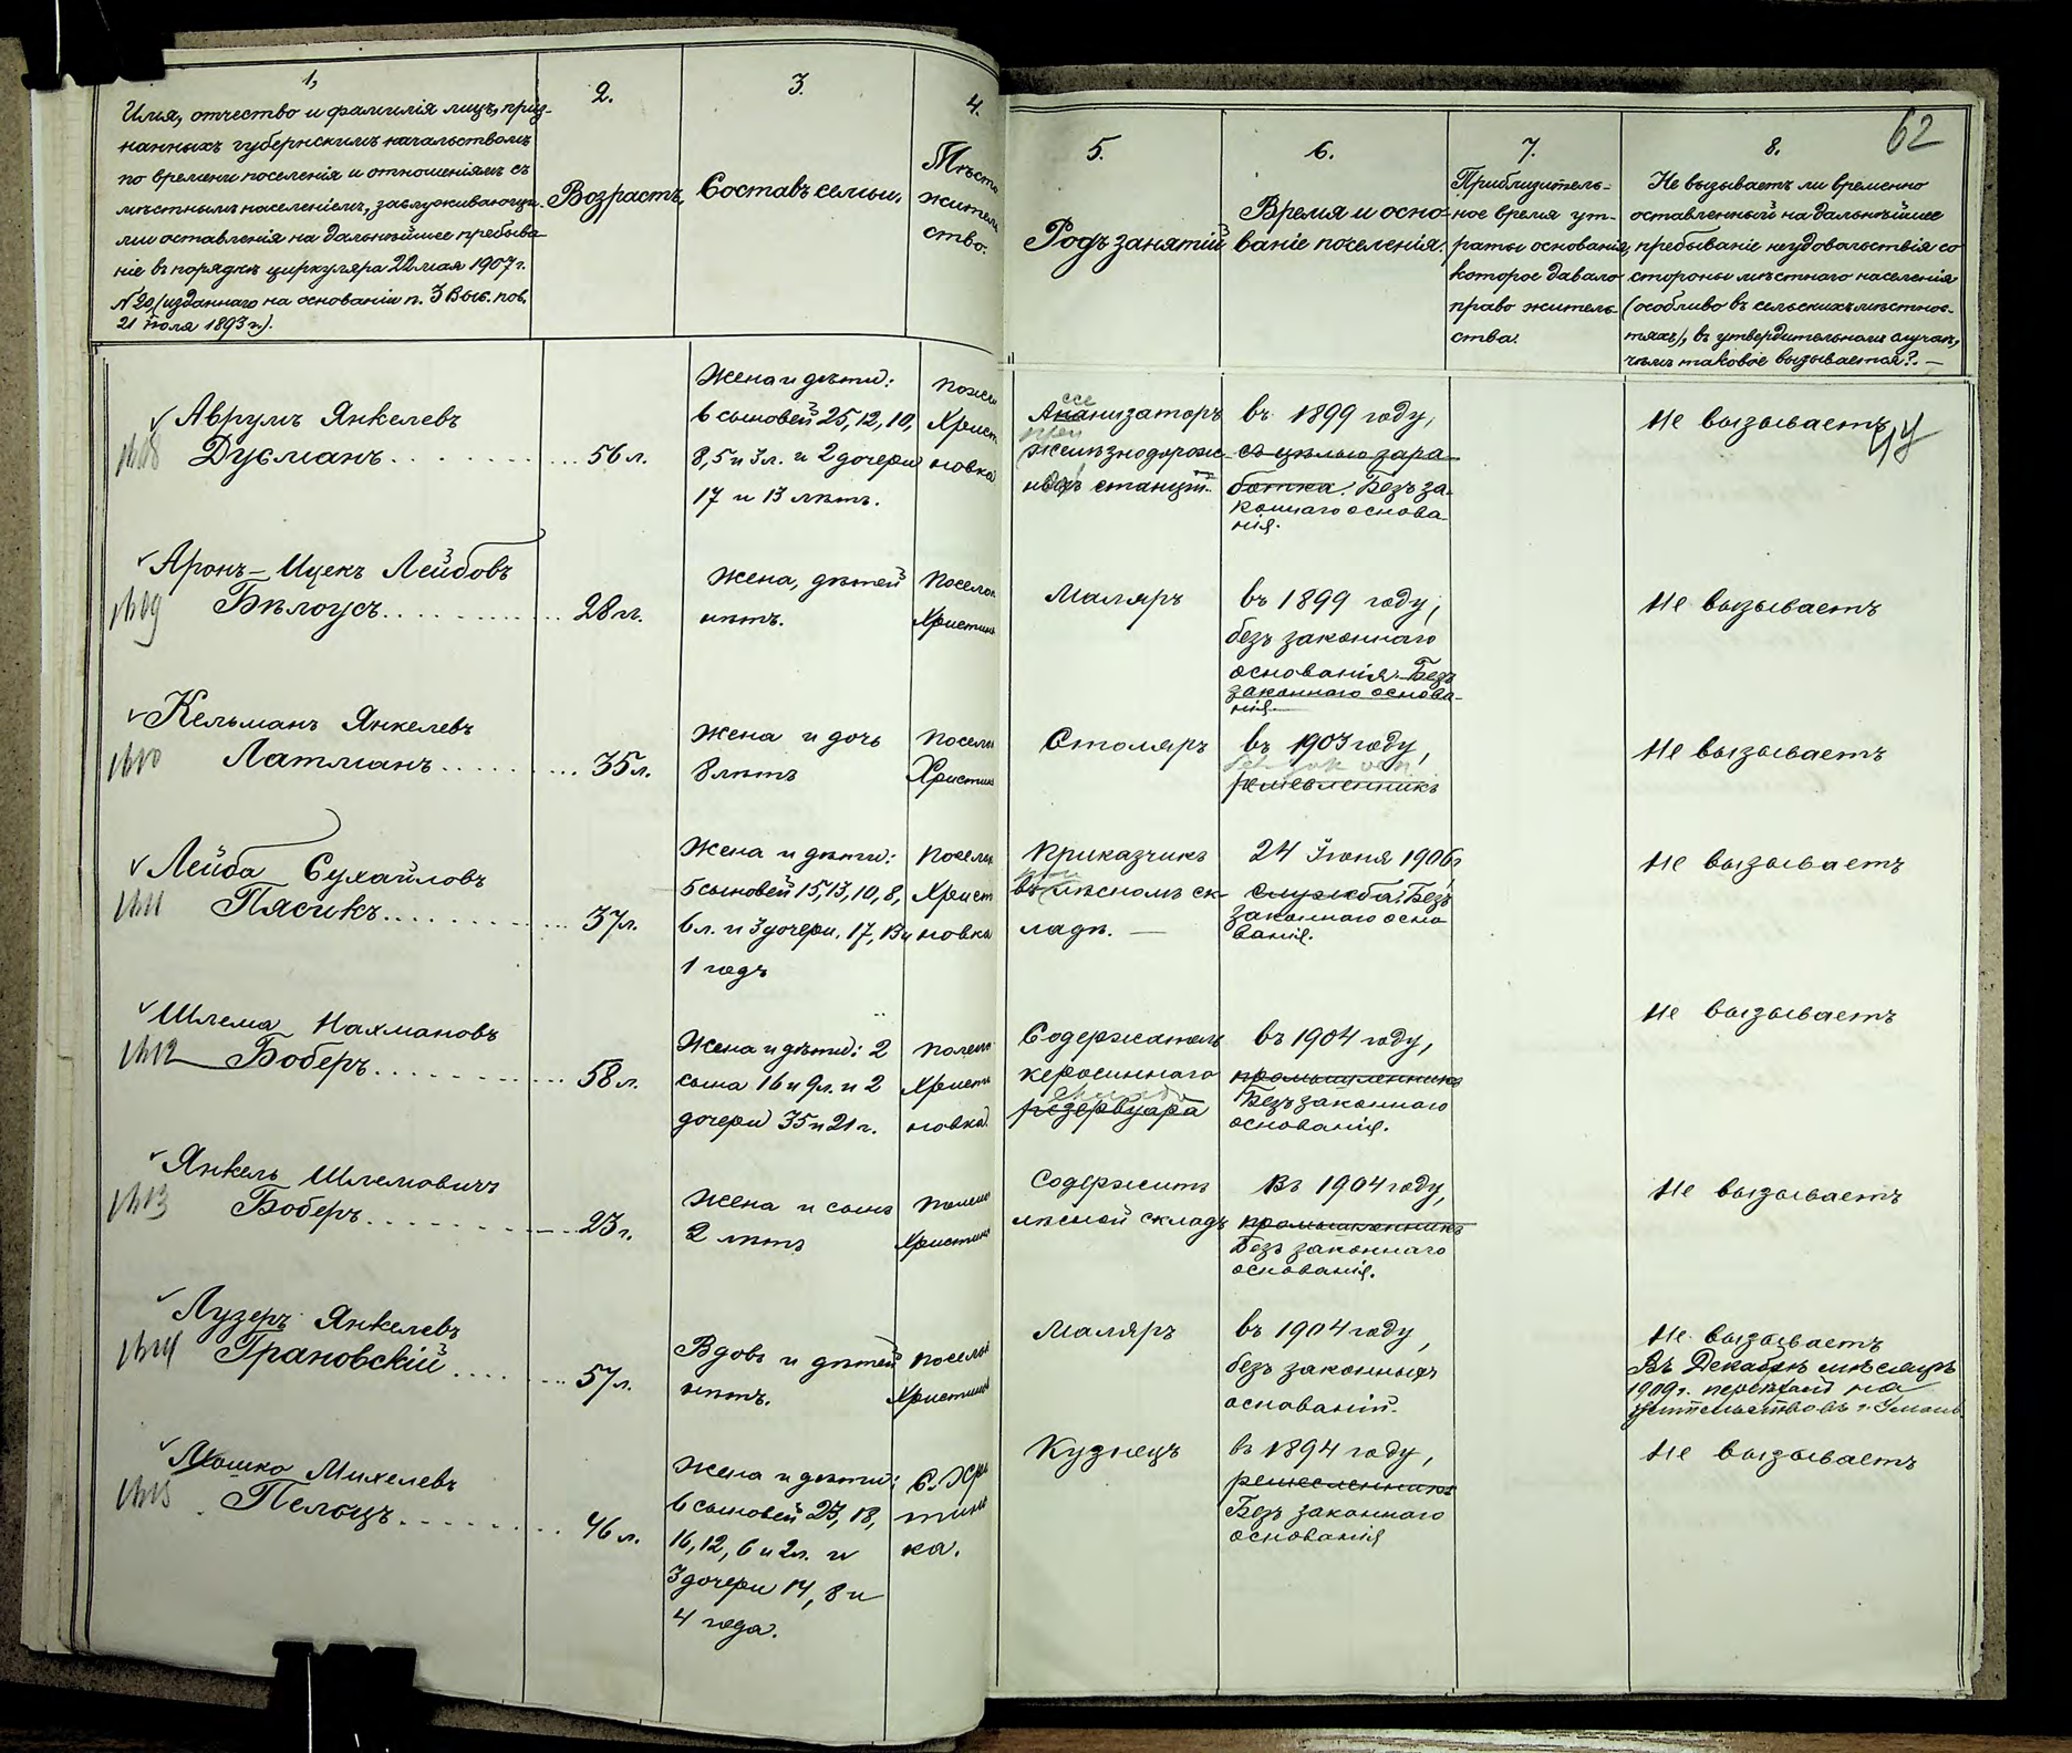 1,
Имя, отчество и фамилія лицъ, приз-
нанныхъ губернскимъ начальствомъ
по времени поселенія и отношеніямъ съ
мѣстнымъ населеніемъ, заслуживающи-
ми оставленія на дальнѣйшее пребыва-
ніе въ порядкѣ циркуляра 22 мая 1907 г.
№ 20 (изданнаго на основаніи п. 3 Выс. пов.
21 Іюля 1893 г.).
2.
Возрастъ,
3.
Составъ семьи.
4.
Мѣсто
житель
ство.
5.
Родъ занятій
6.
Время и осно-
ваніе поселенія.
7.
Приблизитель-
ное время ут-
раты основанія,
которое давало
право житель-
ства.
8.
62
Не вызываетъ ли временно
оставленный на дальнѣйшее
пребываніе неудовольствія со
стороны мѣстнаго населенія
(особливо въ сельскихъ мѣстнос-
тяхъ), въ утвердительномъ случаѣ,
чѣмъ таковое вызывается? —
Аврумъ Янкелевъ
Дусманъ
56 л.
Жена и дѣти:
6 сыновей 25, 12, 10,
8, 5 и 3 л. и 2 дочери
17 и 13 лѣтъ.
Христ
новка
Ассенизаторъ
желѣзнодорож-
станціи
въ 1899 году,
съ цѣлью зара-
ботка. Безъ за-
коннаго основа-
нія.
Не вызываетъ
Аронъ-Ицекъ Лейбовъ
Бѣлоусъ
28 л.
Жена, дѣтей
нѣтъ.
Поселок
Христин
Маляръ
въ 1899 году,
безъ законнаго
основанія. Безъ
законнаго основа-
нія.
Не вызываетъ
Кельманъ Янкелевъ
Латманъ
35 л.
Жена и дочь
8 лѣтъ
Посел
Христин
Столяръ
въ 1903 году,
ремесленникъ
Не вызываетъ
Лейба Сухайловъ
Пясикъ
37 л.
Жена и дѣти:
5 сыновей 15, 13, 10, 8,
6 л. и 3 дочери, 17, 13 и
1 годъ
Посел
Христ
новка
Приказчикъ
въ лѣсномъ ск-
ладѣ. —
24 Іюня 1906 г.
служба. Безъ
законнаго осно
ванія.
Не вызываетъ
Шлема Нахмановъ
Боберъ
58 л.
Жена и дѣти: 2
сына 16 и 9 л. и 2
дочери 35 и 21 г.
Христи
новка
Содержатель
керосиннаго
склада
резервуара
въ 1904 году,
промышленникъ
Безъ законнаго
основанія.
Не вызываетъ
Янкель Шлемовичъ
Боберъ
23 г.
Жена и сынъ
2 лѣтъ
Христин
Содержитъ
лѣсной складъ
Въ 1904 году,
промышленникъ
Безъ законнаго
основанія.
Не вызываетъ
Лузеръ Янкелевъ
Грановскій
57 л.
Вдовъ и дѣтей
нѣтъ.
Посел
Христинов
Маляръ
въ 1904 году,
безъ законныхъ
основаній.
Не вызываетъ
Въ Декабрѣ мѣсяцѣ
1909 г. переѣхалъ на
жительство въ г. Умань
Мошко Михелевъ
Пелоцъ
46 л.
Жена и дѣти:
6 сыновей 23, 18,
16, 12, 6 и 2 л. и
3 дочери 14, 8 и
4 года.
С. Хри
стинов
ка.
Кузнецъ
въ 1894 году,
ремесленникъ
Безъ законнаго
основанія
Не вызываетъ